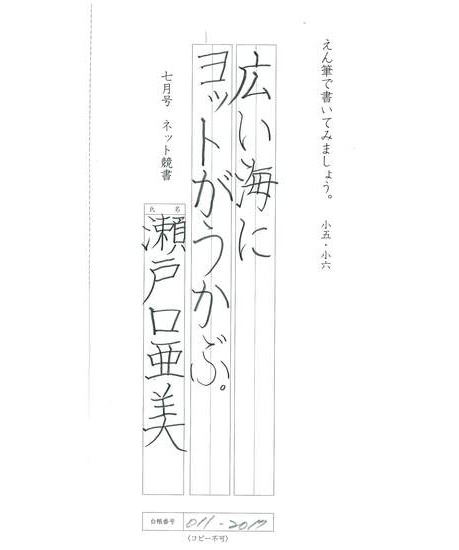 えん筆で書いてみましょう。 小五・小六
広い海に
ヨットがうかぶ。
七月号 ネット競書
氏名
瀬戸口亜美
台帳番号 011-2017
(コピー不可)